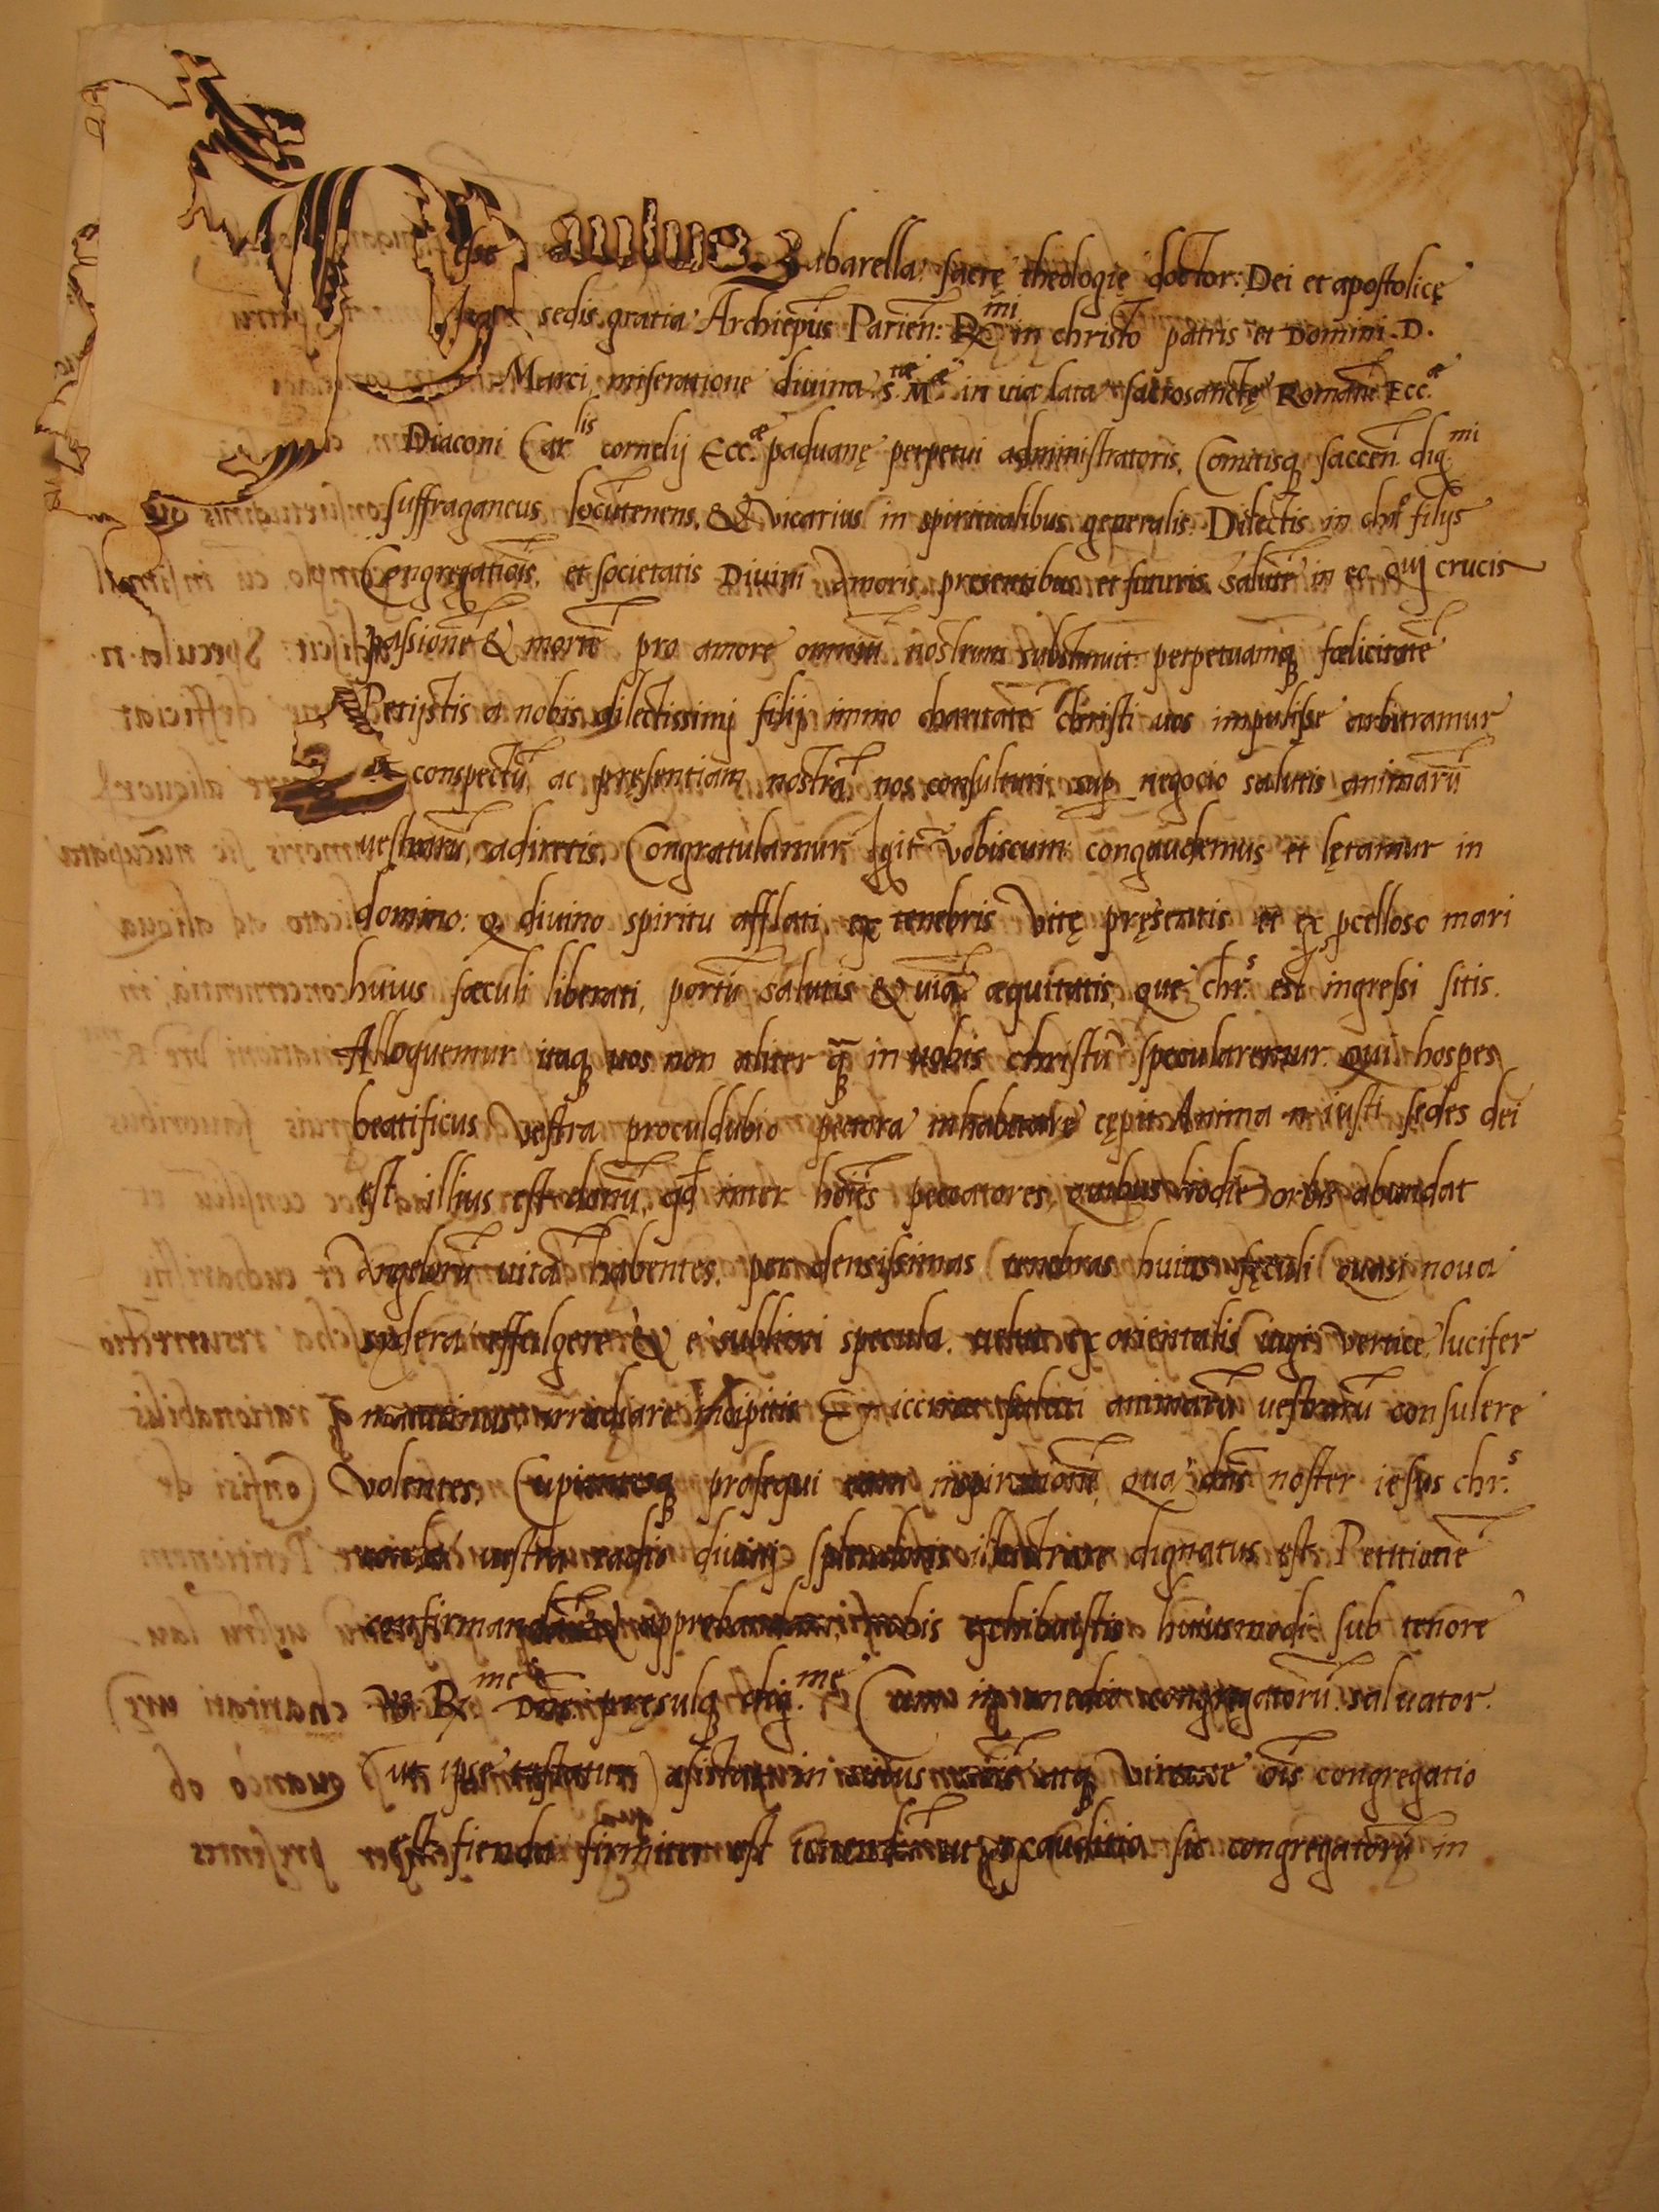 Paulus Zabarella: sacrę theologię doctor: Dei et apostolicę
sedis gratia Archiep̄us Parień: R.mi in christo patris et Domini .D.
Marci miseratione diuina S.tæ M.æ in uia lata sacrosanctę Romanę Ecc.æ
Diaconi Car.lis cornelij Ecc.æ paduanę perpetui administratoris, Comitisq saccen̄. dig.mi
suffraganeus locūtenens, & vicarius in spiritualibus generalis. Dilectis in chr̄o filijs
Congregatiōis, et societatis Diuini Amoris, presentibus et futuris. Salutē in eo qui crucis
passionē & mortē pro amore omniū nostrum substinuit: perpetuamq fœlicitatē
Petijstis a nobis dilectissimi filij immo charitatē Christi uos impulisse arbitramur
ut conspectū ac pręsentiam nostrā nos consulturi sup negocio salutis animarū
uestrarū, adiretis. Congratulamur Igit̄ Vobiscum: congaudemus et lętamur in
domino: q diuino spiritu afflati, ex tenebris Vitę pręsentis et ex pcelloso mari
huius sæculi liberati, portū salutis & uiā æquitatis, quę chr.s est ingressi sitis.
Alloquemur itaq uos non aliter q̄ in uobis christū specularemur qui hospes
beatificus Vestra proculdubio pectora inhabitare cępit Anima n. iusti sedes dei
est illius est donū, qd inter hoīes peccatores, quibus hodie orbis abundat
Angelorū uitā habentes, per densissimas tenebras huius sęculi quasi noua
sydera effulgere & e sublimi specula. uelut ex orientalis iugi vertice lucifer
matutinus, irradiare incipitis saluti animarū uestrarū consulere
Volentes, Cupientesq prosequi eam inspirationē, qua dn̄s noster iesus chr.s
corda uestra radio diuini splendoris illustrare dignatus est. Petitionē
confirmandā & approbandam, nobis exhibuistis huiusmodi sub tenore
R.me Dn̄e pręsulq dig.me Cum in medio congregatorū saluator.
(ut ipse testatur) assistat, in uirtute oīs congregatio
est fienda firmiter est tenendū ut exauditio sit congregatorū in